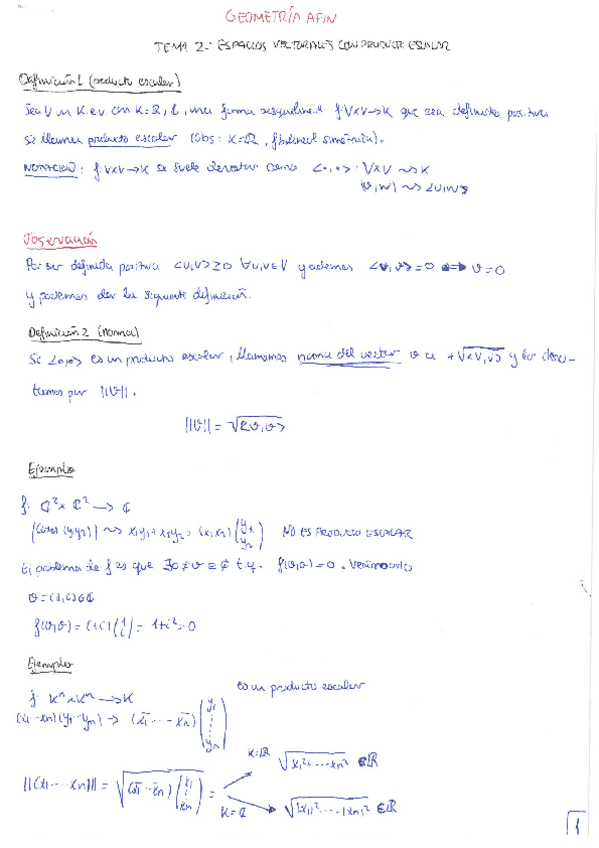 GEOMETRÍA AFIN
TEMA 2.- ESPACIOS VECTORIALES CON PRODUCTO ESCALAR
Definición 1 (producto escalar)
Sea V un K.e.v. con K=ℝ, ℂ, una forma sesquilineal f: V×V→K que sea definida positiva
se llama producto escalar (Obs: K=ℝ, f bilineal simétrica).
NOTACIÓN: f: V×V→K se suele denotar como <·,·>: V×V ⇝ K
(v,w) ⇝ <v,w>
Observación
Por ser definida positiva <v,v>≥0 ∀v,v∈V y además <v,v>=0 ⟺ v=0
y podemos dar la siguiente definición.
Definición 2 (norma)
Si <·,·> es un producto escalar, llamamos norma del vector v a +√<v,v> y lo deno-
tamos por ||v||.
||v|| = √<v,v>
Ejemplo
f: ℂ²×ℂ² → ℂ
⇝ x₁y₁+x₂y₂ = (x₁ x₂) (y₁ y₂) NO ES PRODUCTO ESCALAR
El problema de f es que ∃ 0≠v∈ℂ t.q. f(v,v)=0. Veámoslo
v=(1,i)∈ℂ
f(v,v) = (1 i) (1 i) = 1+i²=0
Ejemplo
f: Kⁿ×Kⁿ → K es un producto escalar
(x₁ ··· xₙ)(y₁ ··· yₙ) → (x̄₁ ··· x̄ₙ) (y₁ ⋮ yₙ)
||(x₁ ··· xₙ)|| = √(x̄₁ ··· x̄ₙ)(x₁ ⋮ xₙ) =
K=ℝ √x₁² ··· xₙ² ∈ℝ
K=ℂ √|x₁|² ··· |xₙ|² ∈ℝ
1